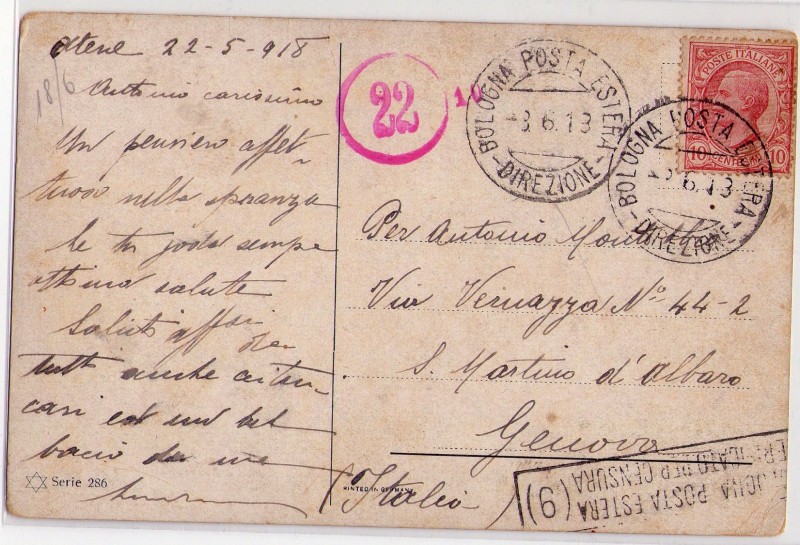 Atene 22-5-918
18/6
Antonio carissimo
Un pensiero affet-
tuoso nella speranza
che tu goda sempre
ottima salute
Saluti affari
per
tutti anche ai tuoi
cari ed un bel
bacio da me
Serie 286
22
10
BOLOGNA POSTA ESTERA
-3.6.18
-DIREZIONE-
BOLOGNA POSTA ESTERA
6.18
-DIREZIONE-
POSTE ITALIANE
10 CENTESIMI 10
Per Antonio
Via Vernazza No 44-2
S. Martino d'Albaro
Genova
(Italia)
PRINTED IN GERMANY
BOLOGNA POSTA ESTERA
VERIFICATO PER CENSURA
(9)